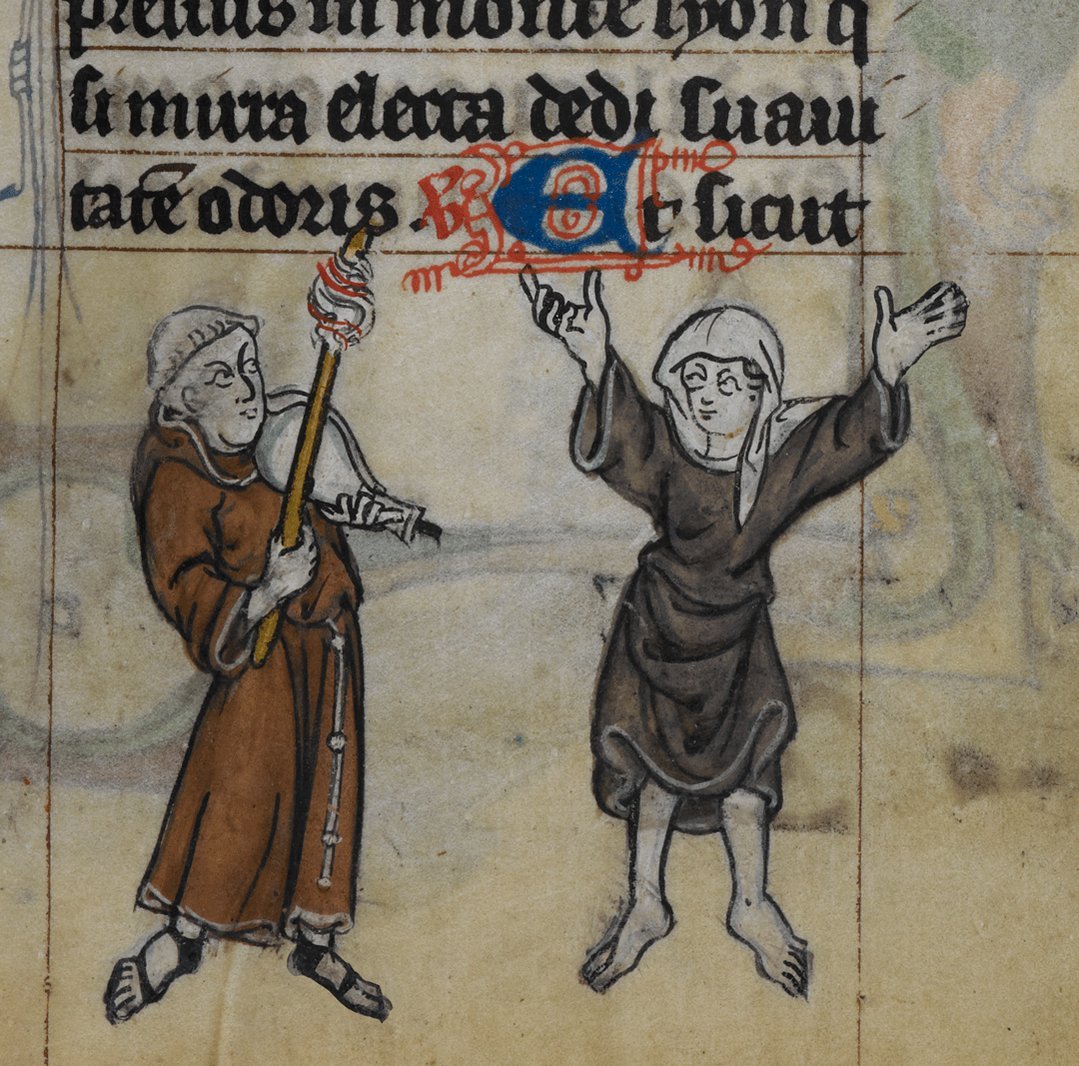 pressus in monte syon q
si mirra electa dedi suaui
tatē odoris. V Et sicut